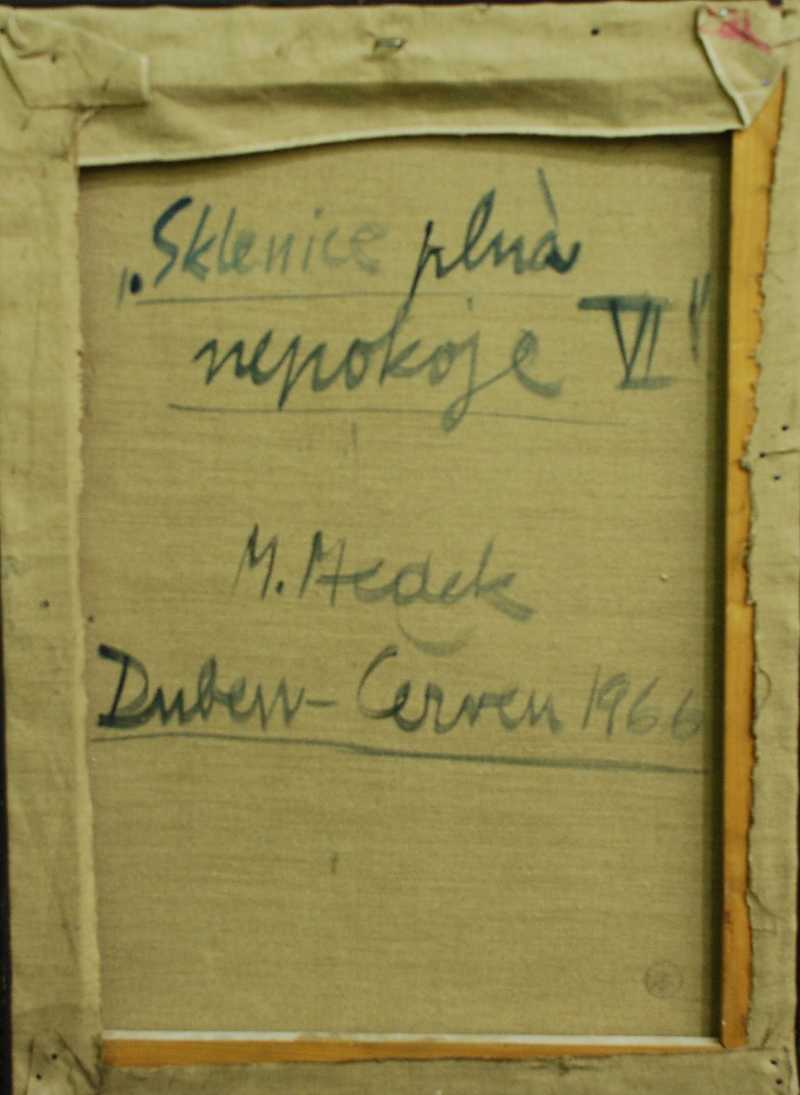 „Sklenice plná
nepokoje VI"
M. Medek
Duben - Červen 1966